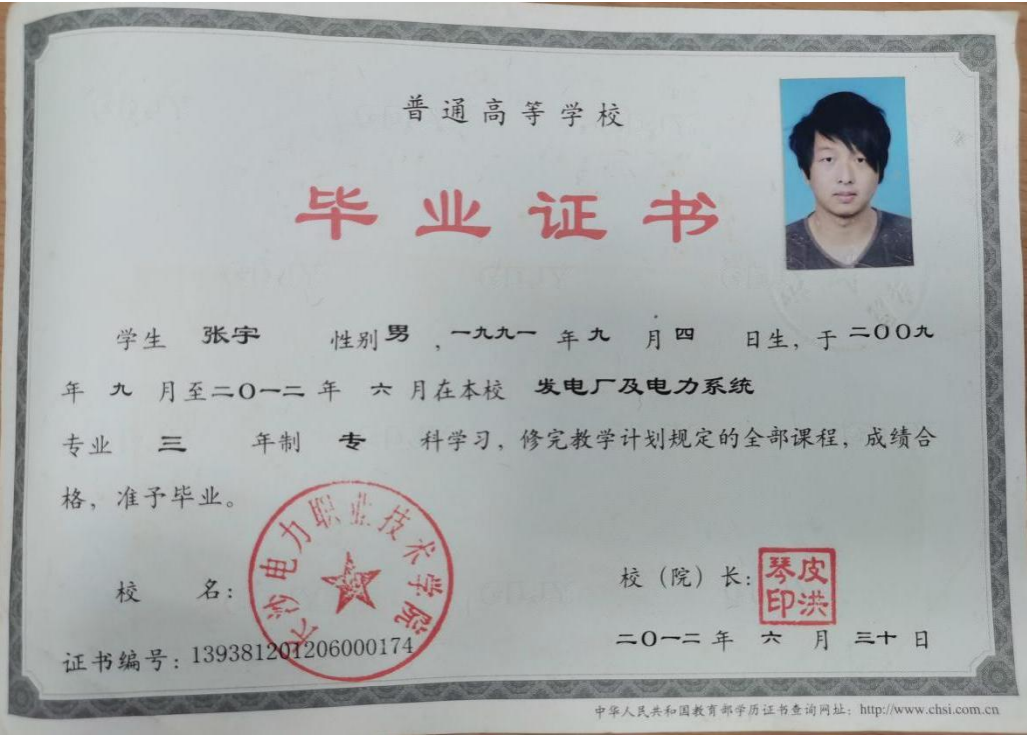 普通高等学校
毕业证书
学生 张宇 性别 男 , 一九九一 年 九 月 四 日生, 于 二〇〇九
年 九 月至 二〇一二 年 六 月在本校 发电厂及电力系统
专业 三 年制 专 科学习, 修完教学计划规定的全部课程, 成绩合
格, 准予毕业。
长沙电力职业技术学院
校 名:
校（院）长:
皮洪琴印
二〇一二 年 六 月 三十 日
证书编号: 139381201206000174
中华人民共和国教育部学历证书查询网址: http://www.chsi.com.cn